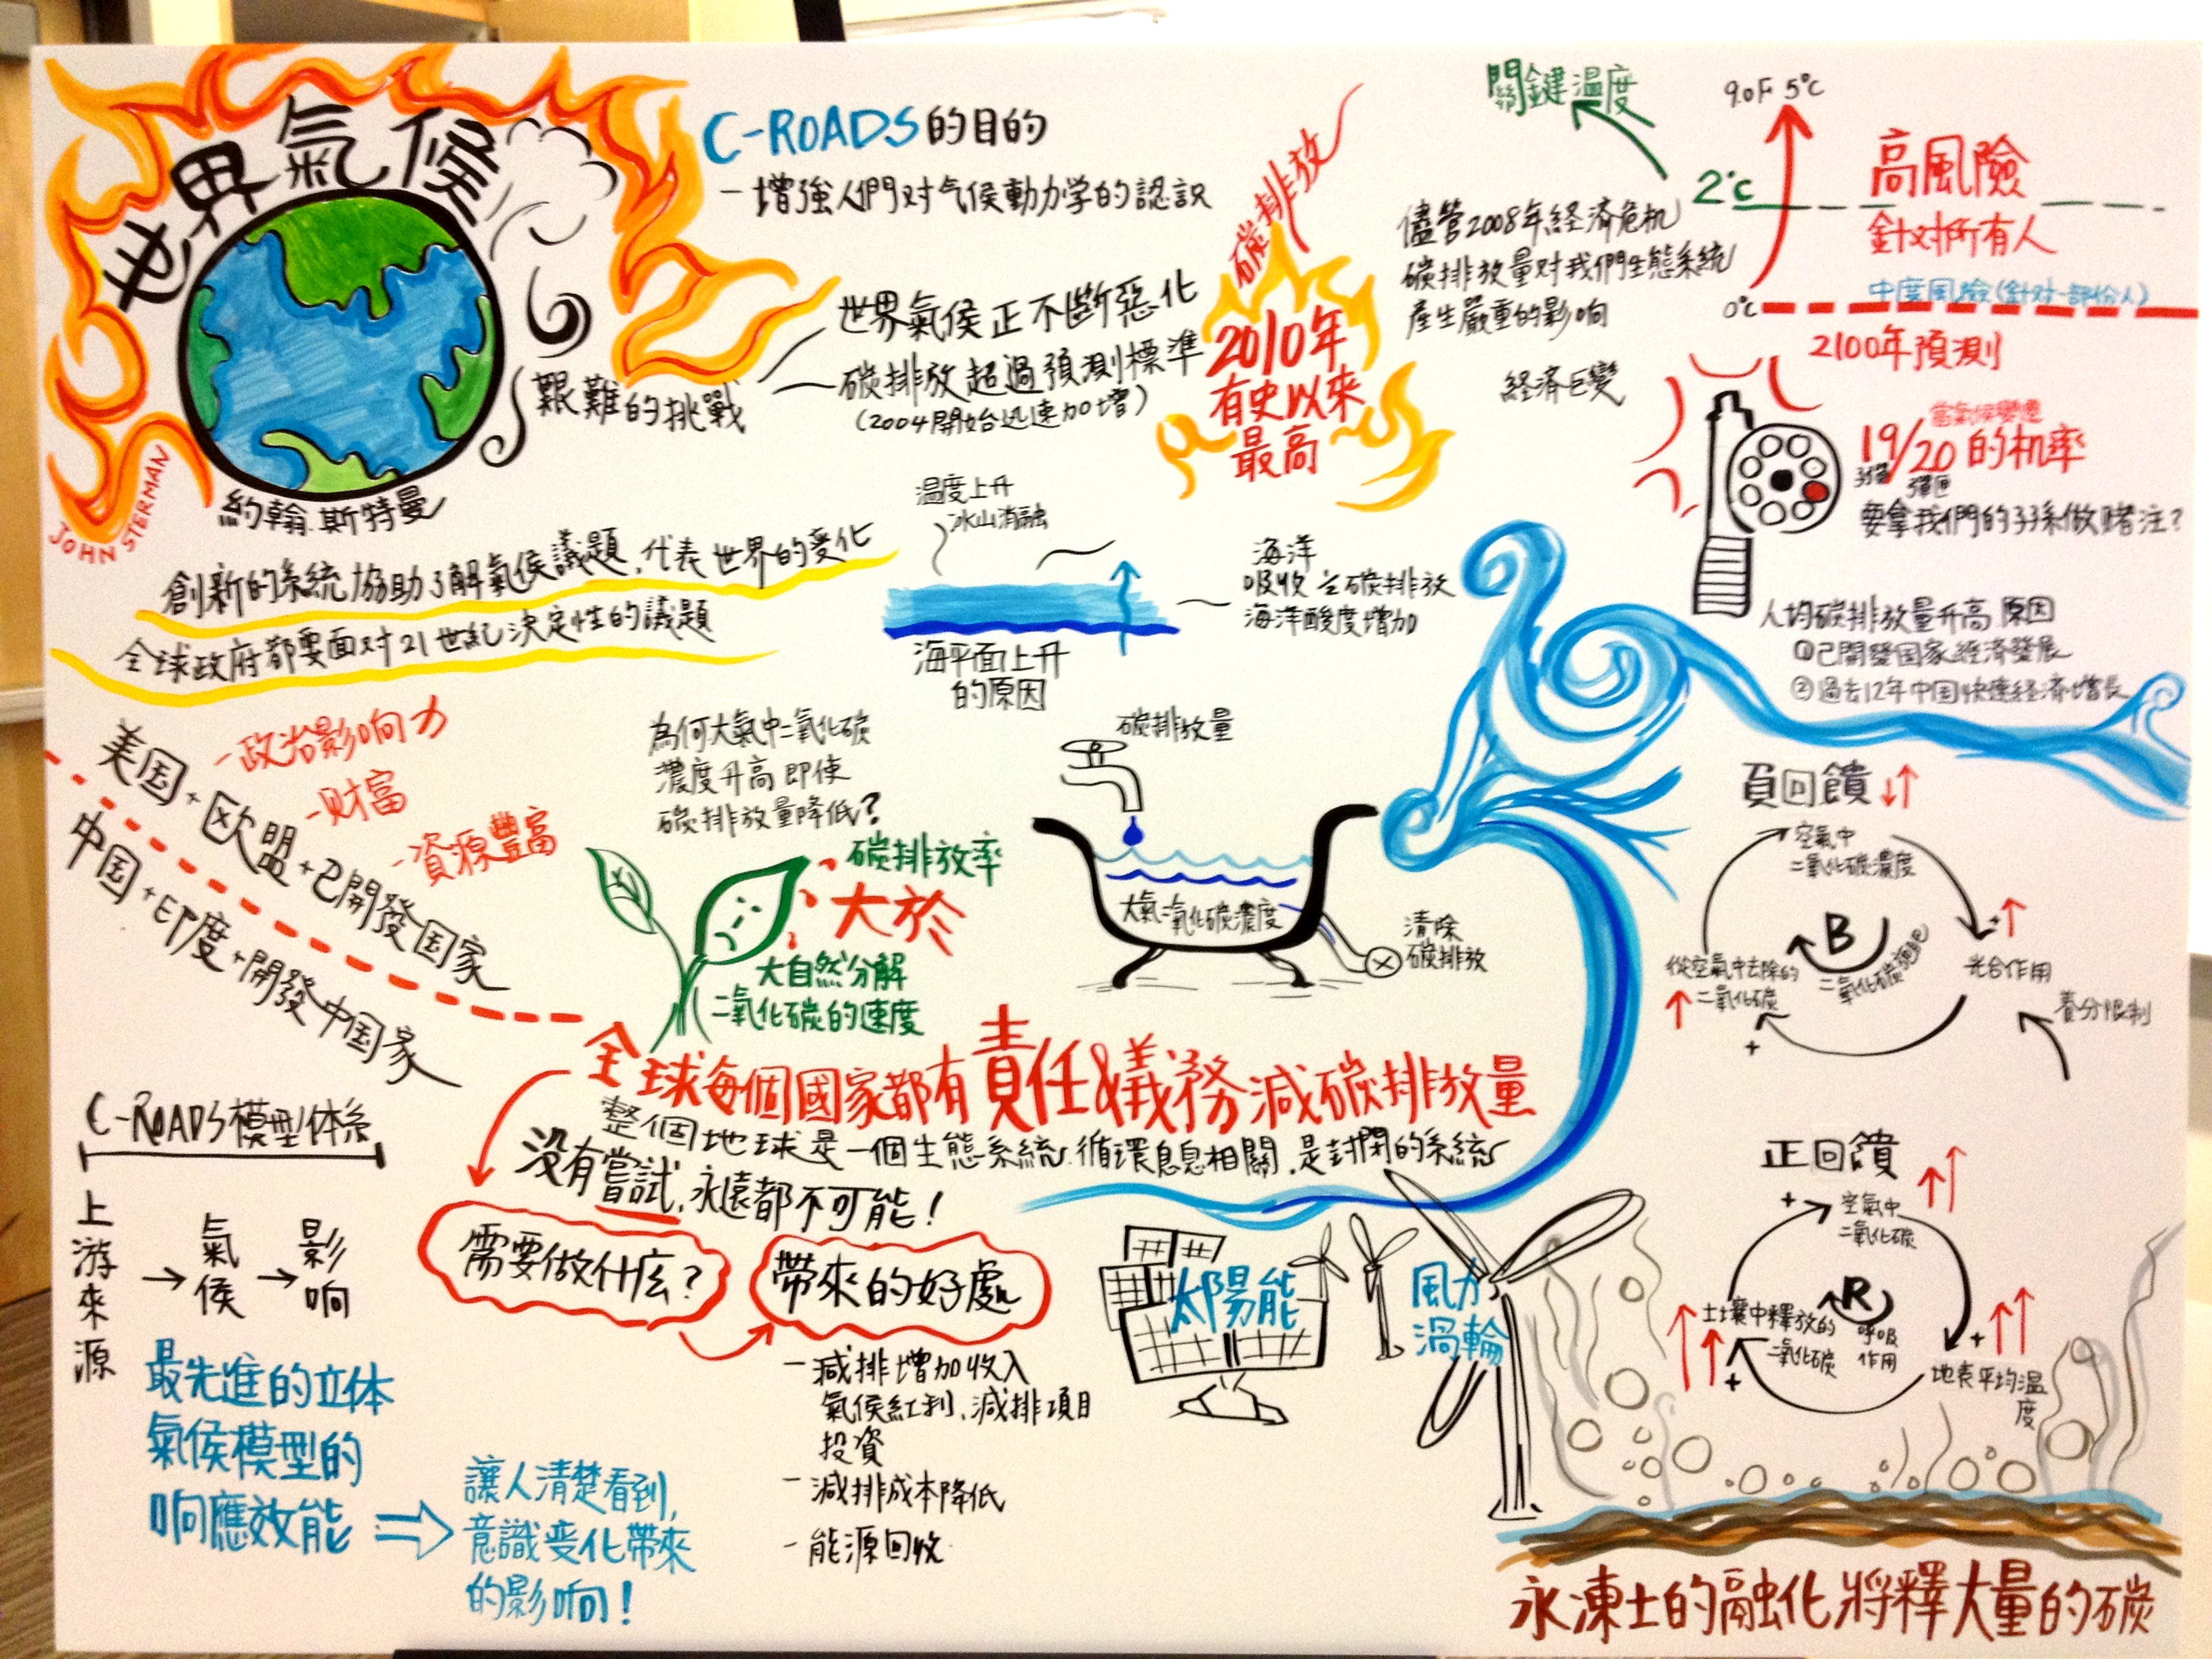 世界氣候
約翰.斯特曼
JOHN STERMAN
艱難的挑戰
C-ROADS的目的
- 增強人們对气候動力学的認识
世界氣候正不斷惡化
碳排放超過預測標準
(2004開始迅速加增)
碳排放
2010年
有史以來
最高
關鍵温度
儘管2008年経済危机
碳排放量对我們生態系統
產生嚴重的影响
経済巨變
9.0F 5°C
2°C
0°C
高風險
針对所有人
中度風險(針对一部份人)
2100年預測
當氣候變遷
19/20的机率
彈匣
要拿我們的子孫做赌注?
創新的系統協助了解氣候議題,代表世界的变化
全球政府都要面对21世紀決定性的議題
温度上升
冰山消融
海平面上升
的原因
海洋
吸收 碳排放
海洋酸度增加
人均碳排放量升高原因
①已開發国家経済發展
②過去12年中国快速経済增長
美国+欧盟+已開發国家
-政治影响力
-财富
-資源豐富
中国+印度+開發中国家
為何大氣中二氧化碳
濃度升高即使
碳排放量降低?
碳排放率
大於
大自然分解
二氧化碳的速度
碳排放量
大氣二氧化碳濃度
清除
碳排放
負回饋
空氣中
二氧化碳濃度
+
光合作用
養分限制
B
二氧化碳
從空氣中去除的
二氧化碳
+
全球每個國家都有責任&義務減碳排放量
整個地球是一個生態系統.循環息息相關,是封閉的系統
没有嘗試,永遠都不可能!
需要做什庅?
帶來的好處
- 減排增加收入
氣候紅利、減排項目
投資
- 減排成本降低
- 能源回收
C-ROADS模型体系
上游來源
→氣候
→影响
最先進的立体
氣候模型的
响應效能
讓人清楚看到,
意識变化帶來
的影响!
太陽能
風力
渦輪
正回饋
+
空氣中
二氧化碳
R
呼吸
作用
土壤中釋放的
二氧化碳
+
+
地表平均温
度
永凍土的融化將釋大量的碳